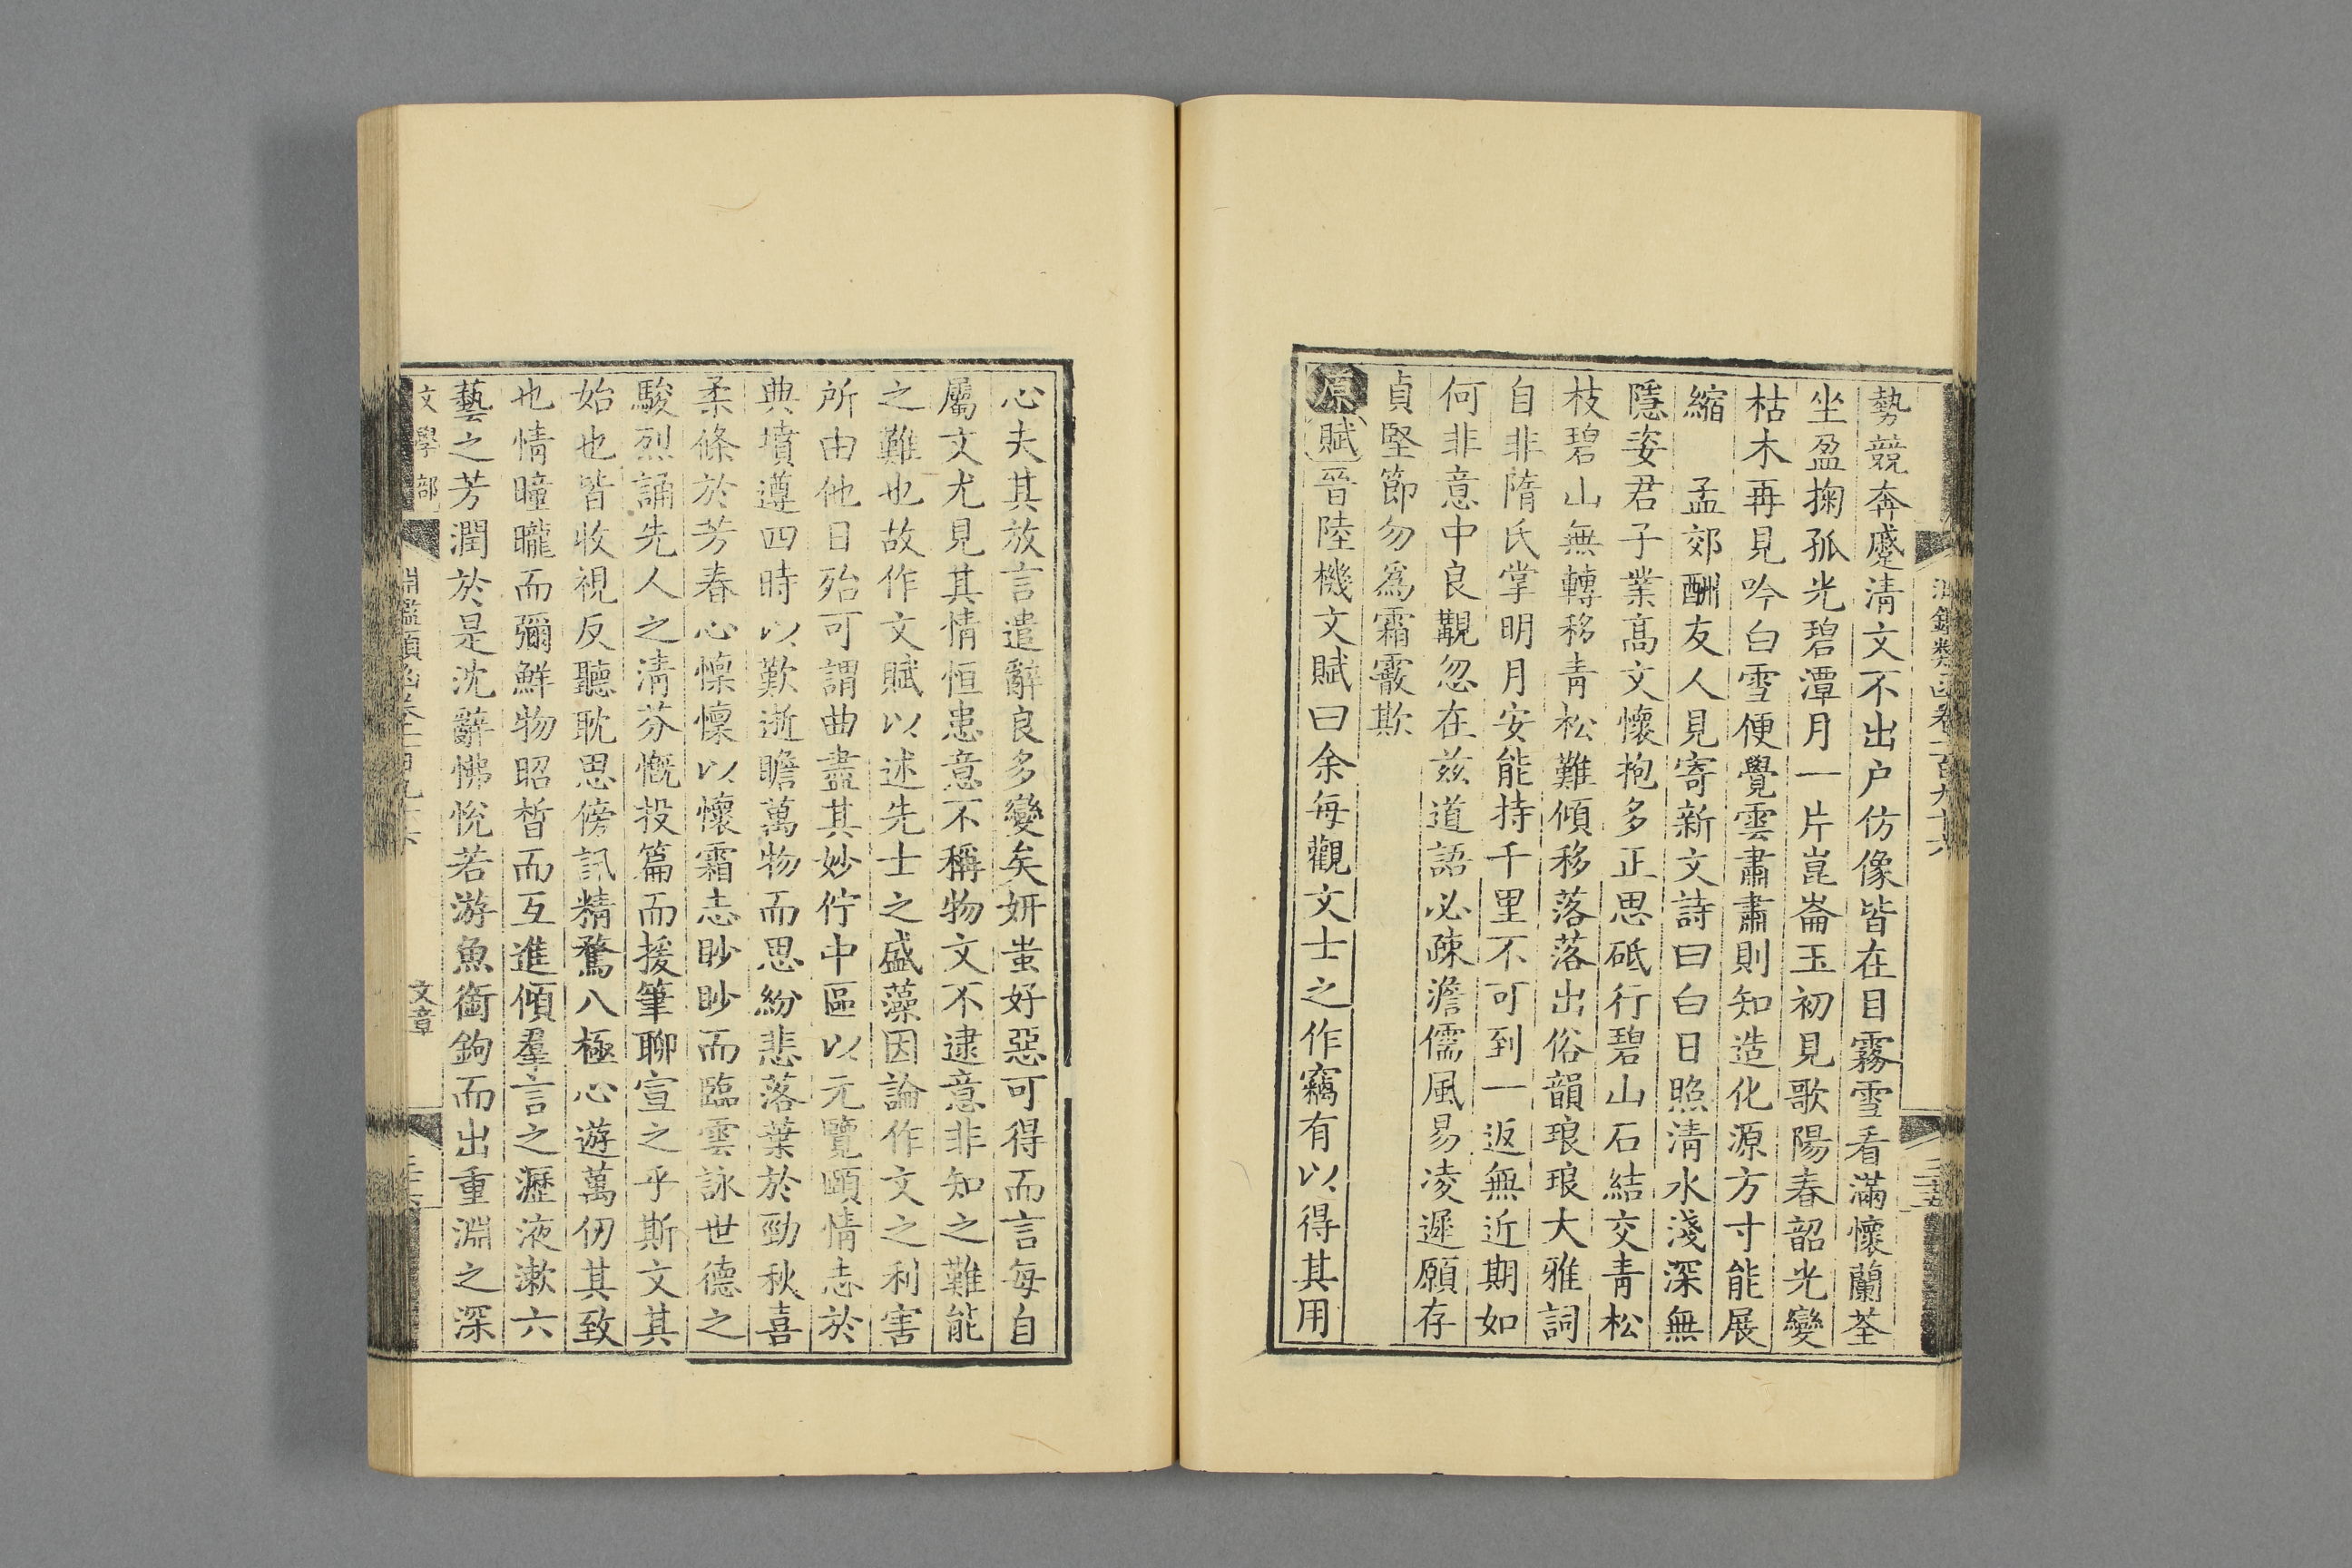 淵鑑類函卷一百九十六
勢競奔蹙清文不出户仿像皆在目霧雪看滿懷蘭荃
坐盈掬孤光碧潭月一片崑崙玉初見歌陽春韶光變
枯木再見吟白雪便覺雲肅肅則知造化源方寸能展
縮　孟郊酬友人見寄新文詩曰白日照清水淺深無
隱姿君子業髙文懷抱多正思砥行碧山石結交青松
枝碧山無轉移青松難傾移落落出俗韻琅琅大雅詞
自非隋氏掌明月安能持千里不可到一返無近期如
何非意中良觀忽在兹道語必疎澹儒風易凌遲願存
貞堅節勿爲霜霰欺
原賦晉陸機文賦曰余每觀文士之作竊有以得其用
心夫其放言遣辭良多變矣妍蚩好惡可得而言每自
屬文尤見其情恒患意不稱物文不逮意非知之難能
之難也故作文賦以述先士之盛藻因論作文之利害
所由他日殆可謂曲盡其妙佇中區以元覽頤情志於
典墳遵四時以歎逝瞻萬物而思紛悲落葉於勁秋喜
柔條於芳春心懍懍以懷霜志眇眇而臨雲詠世德之
駿烈誦先人之清芬慨投篇而援筆聊宣之乎斯文其
始也皆收視反聽耽思傍訊精騖八極心遊萬仞其致
也情曈曨而彌鮮物昭晳而互進傾羣言之瀝液漱六
藝之芳潤於是沈辭怫恱若游魚銜鉤而出重淵之深
文學部　淵鑑類函卷一百九十六　文章